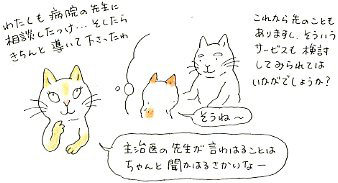 わたしも病院の先生に
相談したっけ…そしたら
きちんと導いて下さったわ
これから先のことも
ありますし、そういう
サービスも検討
してみられては
いかがでしょうか?
そうね〜
主治医の先生が言わはることは
ちゃんと聞かはるさかいなー